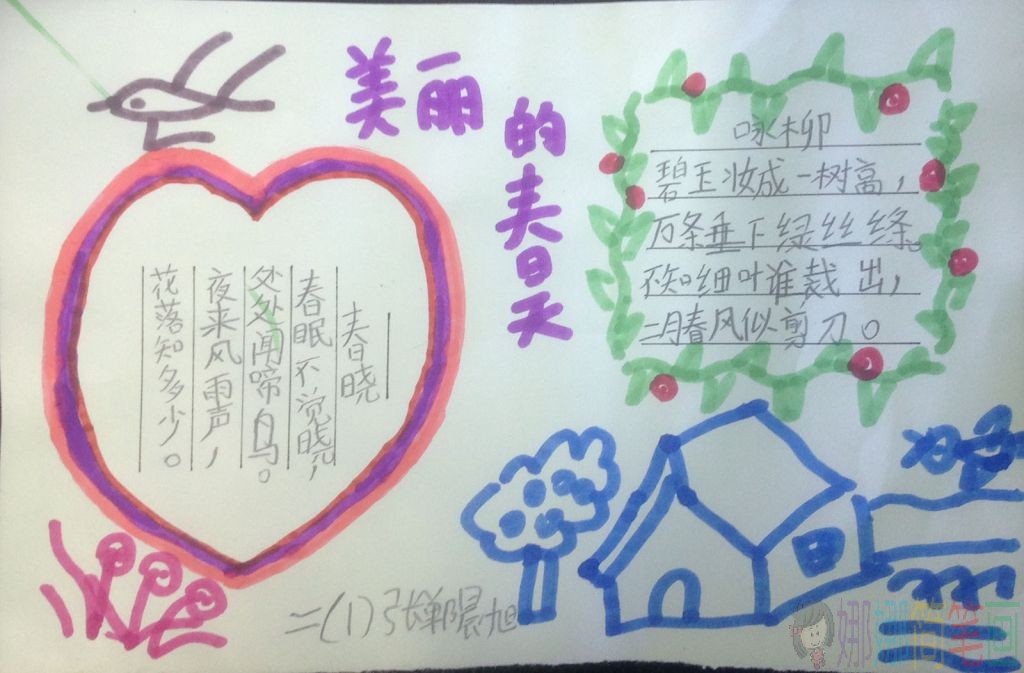 美丽的春天
春晓
春眠不觉晓，
处处闻啼鸟。
夜来风雨声，
花落知多少。
咏柳
碧玉妆成一树高，
万条垂下绿丝绦。
不知细叶谁裁出，
二月春风似剪刀。
二(1)张
娜娜简笔画